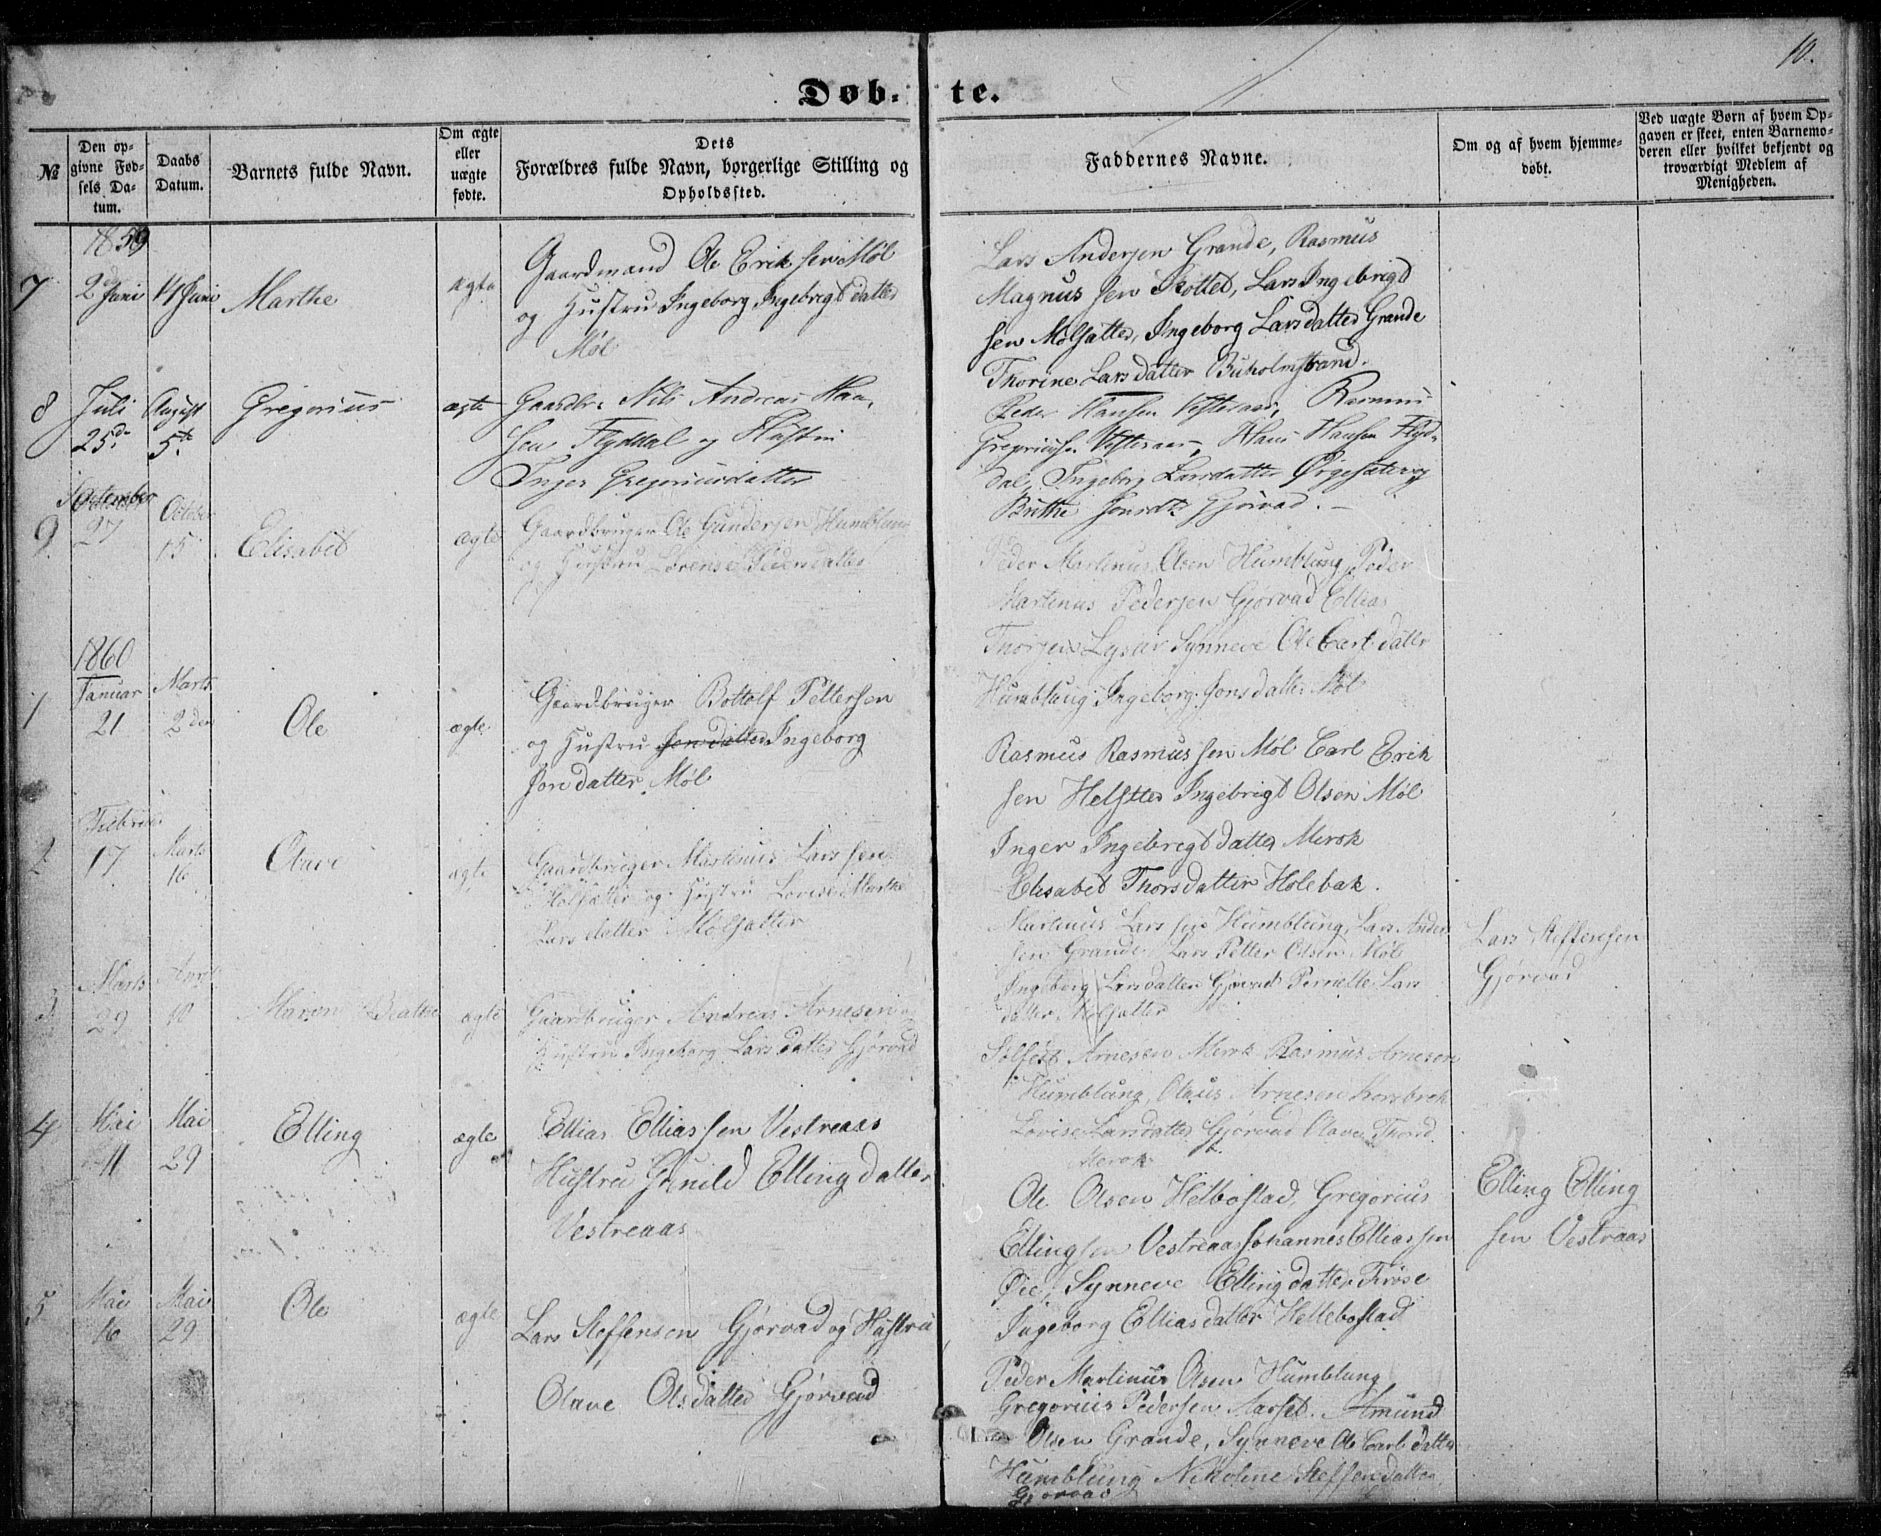 10.
Døb- te.
№
Den op-
givne Fød-
sels Da-
tum.
Daabs
Datum.
Barnets fulde Navn.
Om ægte
eller
uægte
fødte.
Dets
Forældres fulde Navn, borgerlige Stilling og
Opholdssted.
Faddernes Navne.
Om og af hvem hjemme-
døbt.
Ved uægte Børn af hvem Op-
gaven er skeet, enten Barnemo-
deren eller hvilket bekjendt og
troværdigt Medlem af
Menigheden.
1859
7
2d Juni
14 Juni
Marthe
ægte
Gaardmand Ole Eriksen Møl
og Hustru Ingeborg Ingebrigtdatter
Møl
Lars Andersen Grande, Rasmus
Magnussen Skottet, Lars Ingebrigt
sen Mølsætter, Ingeborg Larsdatter Grande
Thorine Larsdatter Buholmstrand.
8
Juli
25de
August
5te
Gregorius
ægte
Gaardbr. Nils Andreas Han-
sen Flyddal og Hustru
Inger Gregoriusdatter
Peder Hansen Vesteraas, Rasmus
Gregoriuss. Vesteraas, Hans Hansen Flyd-
dal, Ingeborg Larsdatter Ørgesæter og
Brithe Jonsdt Gjørvad. -
9
September
27
October
15
Elisabet
ægte
Gaardbruger Ole Gundersen Humblung
og Hustru Lorense datter
Peder Martinus Olsen Humblung, Peder
Martinus Pedersen Gjørvad Ellias
Thorsen Synneve Ole Carl datter
Humblung Ingeborg Jonsdatter Møl
1860
1
Januar
21
Marts
2den
Ole
ægte
Gaardbruger Bottolf Pettersen
og Hustru Jonsdatter Ingeborg
Jonsdatter Møl
Rasmus Rasmussen Møl Carl Erik
sen Helsetter Ingebrigt Olsen Møl
Inger Ingebrigtdatter Merok
Elisabet Thorsdatter Holebak.
2
Februar
17
Marts
16
Olave
ægte
Gaardbruger Martinus Larsen
Mølsætter og Hustru Lovise Marthe
Larsdatter Mølsætter
Martinus Larsen Humblung, Lars Ander
sen Grande, Lars Petter Olsen Møl
Ingeborg Larsdatter Gjørvad Pernille Lars
datter Mølsætter
Lars Steffensen
Gjørvad
3
Marts
29
April
10
Maren Beathe
ægte
Gaardbruger Andreas Arnesen og
Hustru Ingeborg Larsdatter Gjørvad
Solfest Arnesen Merok Rasmus Arnesen
Humblung, Olaus Arnesen Korsbrek
Lovise Larsdatter Gjørvad Olave Thord
Merok
4
Mai
11
Mai
29
Elling
ægte
Ellias Elliassen Vestreaas
Hustru Gunild Ellingdatter
Vestreaas
Ole Olsen Helbostad, Gregorius
Ellingsen Vestreaas Johannes Elliassen
Øie, Synneve Ellingdatter
Ingeborg Elliasdatter Hellebostad
Elling Elling
sen Vestraas
5
Mai
16
Mai
29
Ole
ægte
Lars Steffensen Gjørvad og Hustru
Olave Olsdatter Gjørvad
Peder Martinus Olsen Humblung
Gregorius Pedersen Aarset. Amund
Olsen Grande, Synneve Ole Carl datter
Humblung Nikoline Steffensdatter
Gjørvad